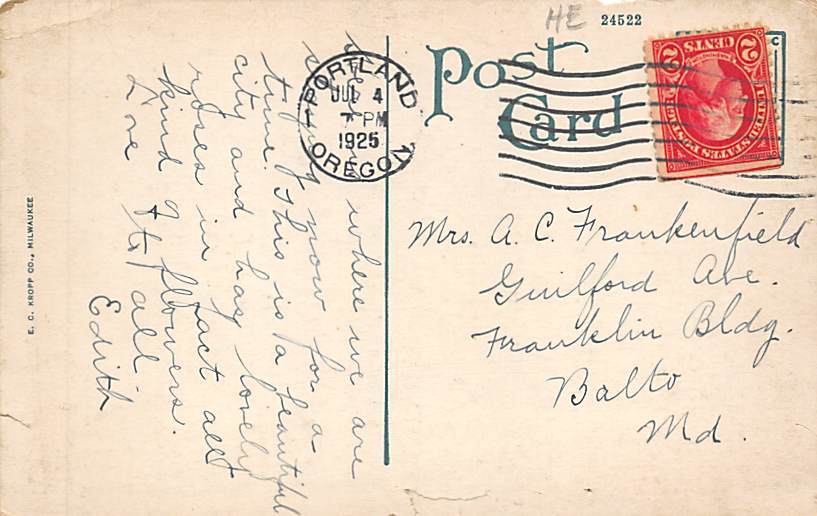 HE 24522
Post
Card
C
2 CENTS 2
PORTLAND
JUL 4
7 PM
1925
OREGON
where we are
now for a
time. This is a beautiful
city and has lovely
roses in fact all
kind of flowers.
Love to all
Edith
Mrs. A. C. Frankenfield
Guilford Ave.
Franklin Bldg.
Balto
Md.
E. C. KROPP CO., MILWAUKEE